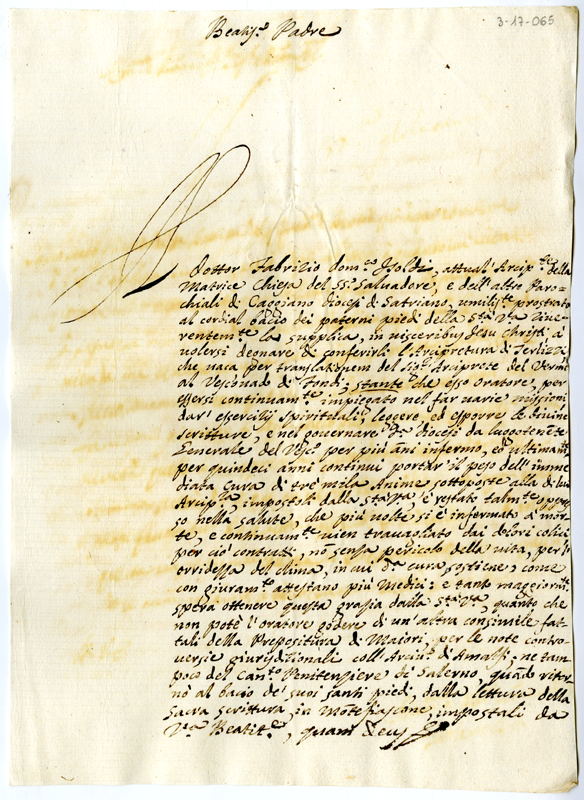 3-17-065
Beatis.o Padre
Il
dottor Fabrizio Dom.co Isoldi, attual' Arcip.te della
Matrice Chiesa del SS.o Salvadore, e dell'altre Paro-
chiali di Caggiano Diocesi di Satriano, umilis.te prostrato
al cordial bacio dei paterni piedi della S.tà V.ra rive-
rentem.te la supplica, in visceribus Jesu Christi à
volersi degnare di conferirli l'Arcipretura di Terlizzi
che vaca per translationem del Sig.r Arciprete del Vermi
al Vescovado di Fondi; stante che esso oratore, per
essersi continuam.te impiegato nel far varie missioni
dar' essercitij spirituali, leggere, ed esporre le divine
scritture, e nel governare d.a Diocesi da luogotenēte
Generale del Vesc.o per più ani infermo, ed ultimam.te
per quindeci anni continui portar' il peso dell'imme
diata Cura di trè mila Anime sottoposte alla di lui
Arcip.ra impostoli dalla S.tà V.ra, è restato talm.te oppres
so nella salute, che più volte si è infermato à mor-
te, e continuam.te vien travagliato dai dolori colici
per ciò contratti, nō senza pericolo della vita, per l'
orridezza del clima, in cui d.a cura sostiene; come
con giuram.to attestano più Medici: e tanto maggiorm.te
spera ottenere questa grazia dalla S.tà V.ra, quanto che
non potè l'oratore godere di un'altra consimile fat-
tali della Prepositura di Maiori, per le note contro-
versie giurisdizionali coll'Arciv.o di Amalfi; ne tam
poco del Can.to Penitenziere di Salerno, quādo ritor
nò al bacio de' suoi santi piedi, dalla lettura della
Sacra scrittura, in Mōtefiascone, impostali da
V.ra Beatit.e, quam Deus